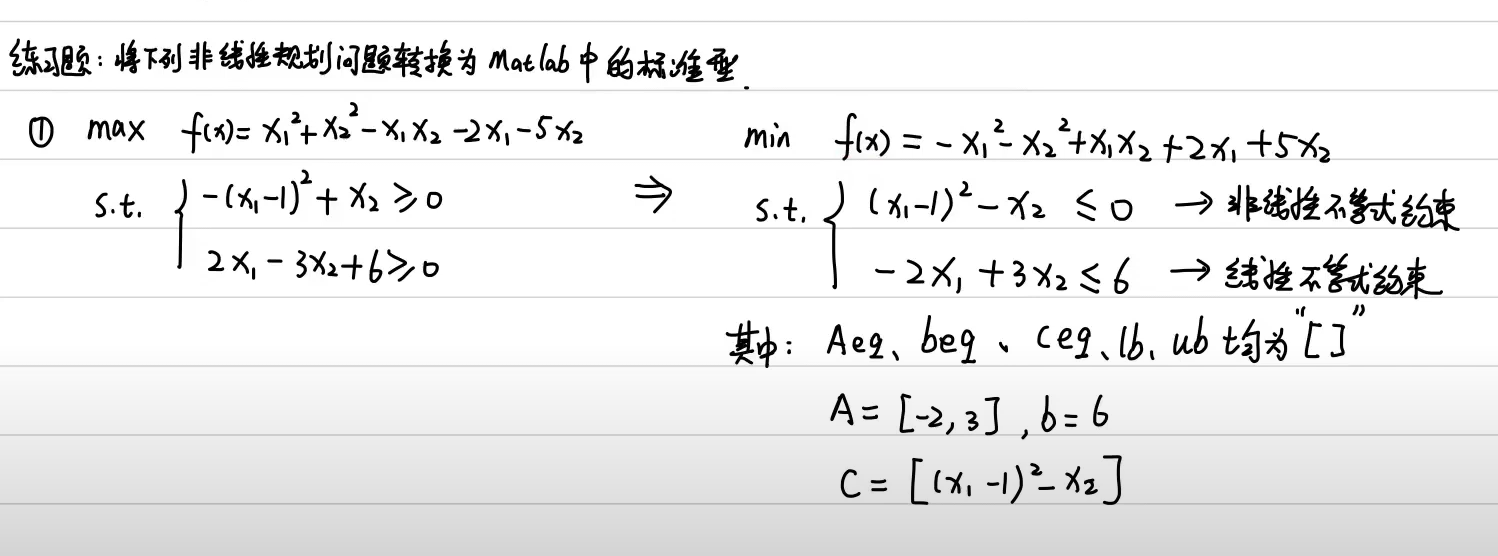 练习题：将下列非线性规划问题转换为 Matlab 中的标准型.
① max f(x)= x₁²+x₂²-x₁x₂-2x₁-5x₂
s.t. { -(x₁-1)²+x₂⩾0
2x₁-3x₂+6⩾0
⇒
min f(x)=-x₁²-x₂²+x₁x₂+2x₁+5x₂
s.t. { (x₁-1)²-x₂ ≤0 → 非线性不等式约束
-2x₁+3x₂≤6 → 线性不等式约束
其中： Aeq、beq、ceq、lb、ub 均为“[]”
A=[-2,3],b=6
C=[(x₁-1)²-x₂]